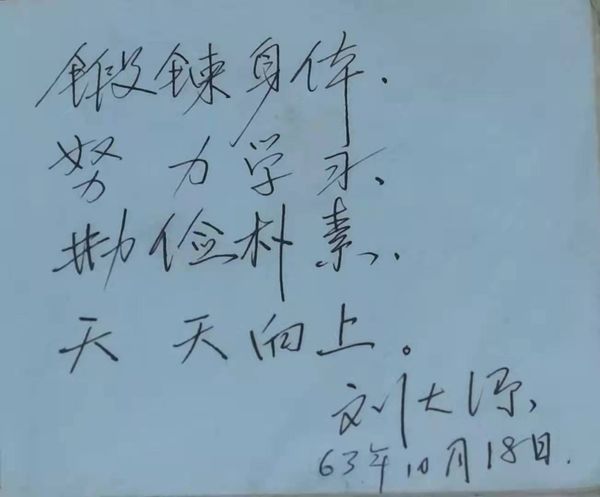 鍛鍊身体、
努力学习、
勤俭朴素、
天天向上。
刘大源
63年10月18日.